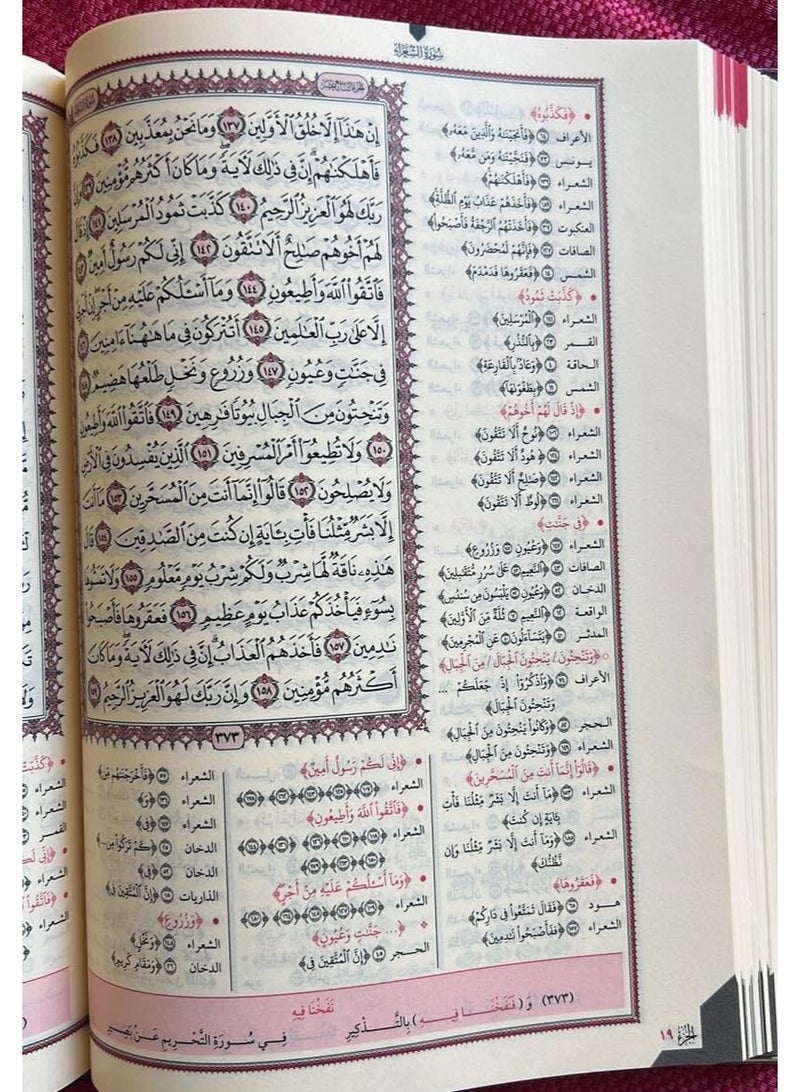 سُورَةُ الشُّعَرَاءِ
إِنْ هَٰذَآ إِلَّا خُلُقُ ٱلْأَوَّلِينَ ١٣٧ وَمَا نَحْنُ بِمُعَذَّبِينَ ١٣٨ فَكَذَّبُوهُ
فَأَهْلَكْنَٰهُمْ ۗ إِنَّ فِى ذَٰلِكَ لَءَايَةً ۖ وَمَا كَانَ أَكْثَرُهُم مُّؤْمِنِينَ ١٣٩ وَإِنَّ
رَبَّكَ لَهُوَ ٱلْعَزِيزُ ٱلرَّحِيمُ ١٤٠ كَذَّبَتْ ثَمُودُ ٱلْمُرْسَلِينَ ١٤١ إِذْ قَالَ
لَهُمْ أَخُوهُمْ صَٰلِحٌ أَلَا تَتَّقُونَ ١٤٢ إِنِّى لَكُمْ رَسُولٌ أَمِينٌ ١٤٣
فَٱتَّقُوا۟ ٱللَّهَ وَأَطِيعُونِ ١٤٤ وَمَآ أَسْـَٔلُكُمْ عَلَيْهِ مِنْ أَجْرٍ ۖ إِنْ أَجْرِىَ
إِلَّا عَلَىٰ رَبِّ ٱلْعَٰلَمِينَ ١٤٥ أَتُتْرَكُونَ فِى مَا هَٰهُنَآ ءَامِنِينَ ١٤٦
فِى جَنَّٰتٍ وَعُيُونٍ ١٤٧ وَزُرُوعٍ وَنَخْلٍ طَلْعُهَا هَضِيمٌ ١٤٨
وَتَنْحِتُونَ مِنَ ٱلْجِبَالِ بُيُوتًا فَٰرِهِينَ ١٤٩ فَٱتَّقُوا۟ ٱللَّهَ وَأَطِيعُونِ
١٥٠ وَلَا تُطِيعُوٓا۟ أَمْرَ ٱلْمُسْرِفِينَ ١٥١ ٱلَّذِينَ يُفْسِدُونَ فِى ٱلْأَرْضِ
وَلَا يُصْلِحُونَ ١٥٢ قَالُوٓا۟ إِنَّمَآ أَنتَ مِنَ ٱلْمُسَحَّرِينَ ١٥٣ مَآ أَنتَ
إِلَّا بَشَرٌ مِّثْلُنَا فَأْتِ بِـَٔايَةٍ إِن كُنتَ مِنَ ٱلصَّٰدِقِينَ ١٥٤ قَالَ
هَٰذِهِۦ نَاقَةٌ لَّهَا شِرْبٌ وَلَكُمْ شِرْبُ يَوْمٍ مَّعْلُومٍ ١٥٥ وَلَا تَمَسُّوهَا
بِسُوٓءٍ فَيَأْخُذَكُمْ عَذَابُ يَوْمٍ عَظِيمٍ ١٥٦ فَعَقَرُوهَا فَأَصْبَحُوا۟
نَٰدِمِينَ ١٥٧ فَأَخَذَهُمُ ٱلْعَذَابُ ۗ إِنَّ فِى ذَٰلِكَ لَءَايَةً ۖ وَمَا كَانَ
أَكْثَرُهُم مُّؤْمِنِينَ ١٥٨ وَإِنَّ رَبَّكَ لَهُوَ ٱلْعَزِيزُ ٱلرَّحِيمُ ١٥٩
٣٧٣
﴿فَكَذَّبُوهُ﴾
الأعراف ٦٤ ﴿فَأَنجَيْنَٰهُ وَٱلَّذِينَ مَعَهُۥ﴾
يونس ٧٣ ﴿فَنَجَّيْنَٰهُ وَمَن مَّعَهُۥ﴾
الشعراء ١٣٩ ﴿فَأَهْلَكْنَٰهُمْ﴾
الشعراء ١٨٩ ﴿فَأَخَذَهُمْ عَذَابُ يَوْمِ ٱلظُّلَّةِ﴾
العنكبوت ٣٧ ﴿فَأَخَذَتْهُمُ ٱلرَّجْفَةُ فَأَصْبَحُوا۟﴾
الصافات ١٢٧ ﴿فَإِنَّهُمْ لَمُحْضَرُونَ﴾
الشمس ١٤ ﴿فَعَقَرُوهَا فَدَمْدَمَ﴾
﴿كَذَّبَتْ ثَمُودُ﴾
الشعراء ١٤١ ﴿ٱلْمُرْسَلِينَ﴾
القمر ٢٣ ﴿بِٱلنُّذُرِ﴾
الحاقة ٤ ﴿وَعَادٌۢ بِٱلْقَارِعَةِ﴾
الشمس ١١ ﴿بِطَغْوَىٰهَآ﴾
﴿إِذْ قَالَ لَهُمْ أَخُوهُمْ﴾
الشعراء ١٠٦ ﴿نُوحٌ أَلَا تَتَّقُونَ﴾
الشعراء ١٢٤ ﴿هُودٌ أَلَا تَتَّقُونَ﴾
الشعراء ١٤٢ ﴿صَٰلِحٌ أَلَا تَتَّقُونَ﴾
الشعراء ١٦١ ﴿لُوطٌ أَلَا تَتَّقُونَ﴾
﴿فِى جَنَّٰتٍ﴾
الشعراء ١٤٧ ﴿وَعُيُونٍ ١٤٧ وَزُرُوعٍ﴾
الصافات ٤٣ ﴿ٱلنَّعِيمِ ٤٣ عَلَىٰ سُرُرٍ مُّتَقَٰبِلِينَ﴾
الدخان ٥٢ ﴿وَعُيُونٍ ٥٢ يَلْبَسُونَ مِن سُندُسٍ﴾
الواقعة ١٢ ﴿ٱلنَّعِيمِ ١٢ ثُلَّةٌ مِّنَ ٱلْأَوَّلِينَ﴾
المدثر ٤٠ ﴿يَتَسَآءَلُونَ ٤٠ عَنِ ٱلْمُجْرِمِينَ﴾
﴿وَتَنْحِتُونَ / يَنْحِتُونَ ٱلْجِبَالَ / مِنَ ٱلْجِبَالِ﴾
الأعراف ٧٤ ﴿وَٱذْكُرُوٓا۟ إِذْ جَعَلَكُمْ ...
وَتَنْحِتُونَ ٱلْجِبَالَ﴾
الحجر ٨٢ ﴿وَكَانُوا۟ يَنْحِتُونَ مِنَ ٱلْجِبَالِ﴾
الشعراء ١٤٩ ﴿وَتَنْحِتُونَ مِنَ ٱلْجِبَالِ﴾
﴿قَالُوٓا۟ إِنَّمَآ أَنتَ مِنَ ٱلْمُسَحَّرِينَ﴾
الشعراء ١٥٣ ﴿مَآ أَنتَ إِلَّا بَشَرٌ مِّثْلُنَا فَأْتِ
بِـَٔايَةٍ إِن كُنتَ﴾
الشعراء ١٨٥ ﴿وَمَآ أَنتَ إِلَّا بَشَرٌ مِّثْلُنَا وَإِن
نَّظُنُّكَ﴾
﴿فَعَقَرُوهَا﴾
هود ٦٥ ﴿فَقَالَ تَمَتَّعُوا۟ فِى دَارِكُمْ﴾
الشعراء ١٥٧ ﴿فَأَصْبَحُوا۟ نَٰدِمِينَ﴾
﴿إِنِّى لَكُمْ رَسُولٌ أَمِينٌ﴾
الشعراء
﴿فَٱتَّقُوا۟ ٱللَّهَ وَأَطِيعُونِ﴾
الشعراء
﴿وَمَآ أَسْـَٔلُكُمْ عَلَيْهِ مِنْ أَجْرٍ﴾
الشعراء
﴿... جَنَّٰتٍ وَعُيُونٍ﴾
الحجر ٤٥ ﴿إِنَّ ٱلْمُتَّقِينَ فِى﴾
الشعراء ٥٧ ﴿فَأَخْرَجْنَٰهُم مِّن﴾
الشعراء ١٣٤ ﴿وَ﴾
الشعراء ١٤٧ ﴿فِى﴾
الدخان ٢٥ ﴿كَمْ تَرَكُوا۟ مِن...﴾
الدخان ٥٢ ﴿فِى﴾
الذاريات ١٥ ﴿إِنَّ ٱلْمُتَّقِينَ فِى﴾
﴿وَزُرُوعٍ﴾
الشعراء ١٤٨ ﴿وَنَخْلٍ﴾
الدخان ٢٦ ﴿وَمَقَامٍ كَرِيمٍ﴾
(٣٧٣) وَ ( فَنَفَخْنَا فِيهِ ) بِالتَّذْكِيرِ
نَفَخْنَا فِيهِ
فِي سُورَةِ التَّحْرِيمِ عَنْ بَصِيرِ
الجزء ١٩